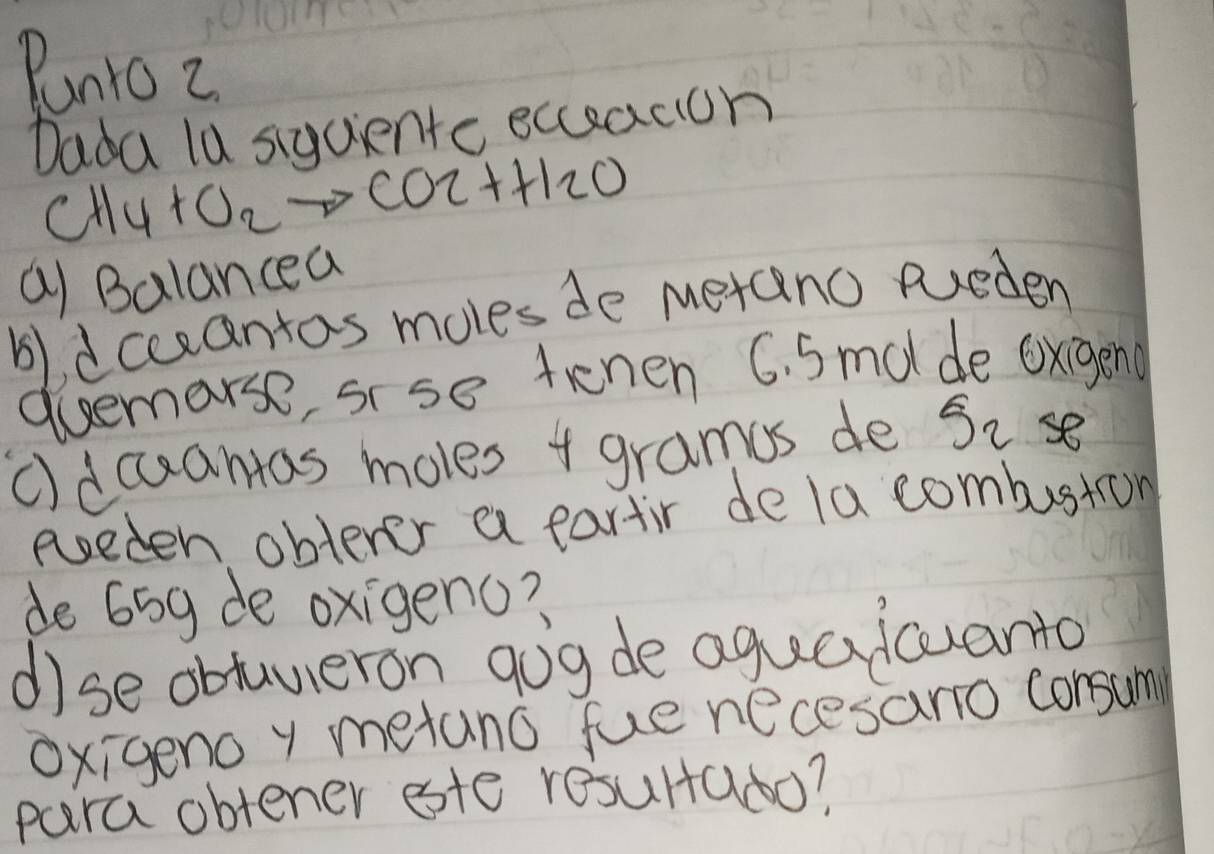 Punto 2
Dada la siguiente ecuacion
CH4 + O2 → CO2 + H2O
a) Balancea
b) ¿cuantos moles de metano Pueden
quemarse, si se tienen 6.5 mol de oxigeno
c) ¿cuantas moles y gramos de S2 se
pueden obtener a partir de la combustion
de 65g de oxigeno?
d) se obtuvieron 90g de agua ¿cuanto
oxigeno y metano fue necesario consumir
para obtener este resultado?